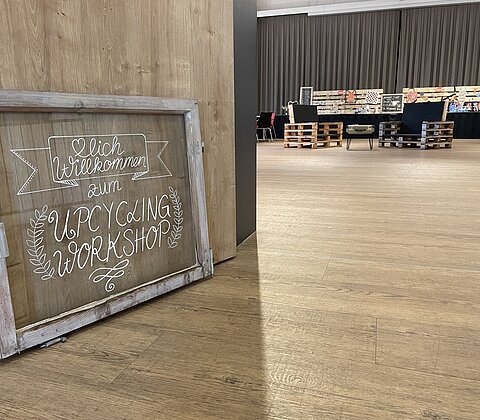 ♡lich
Willkommen
zum
UPCYCLING
WORKSHOP